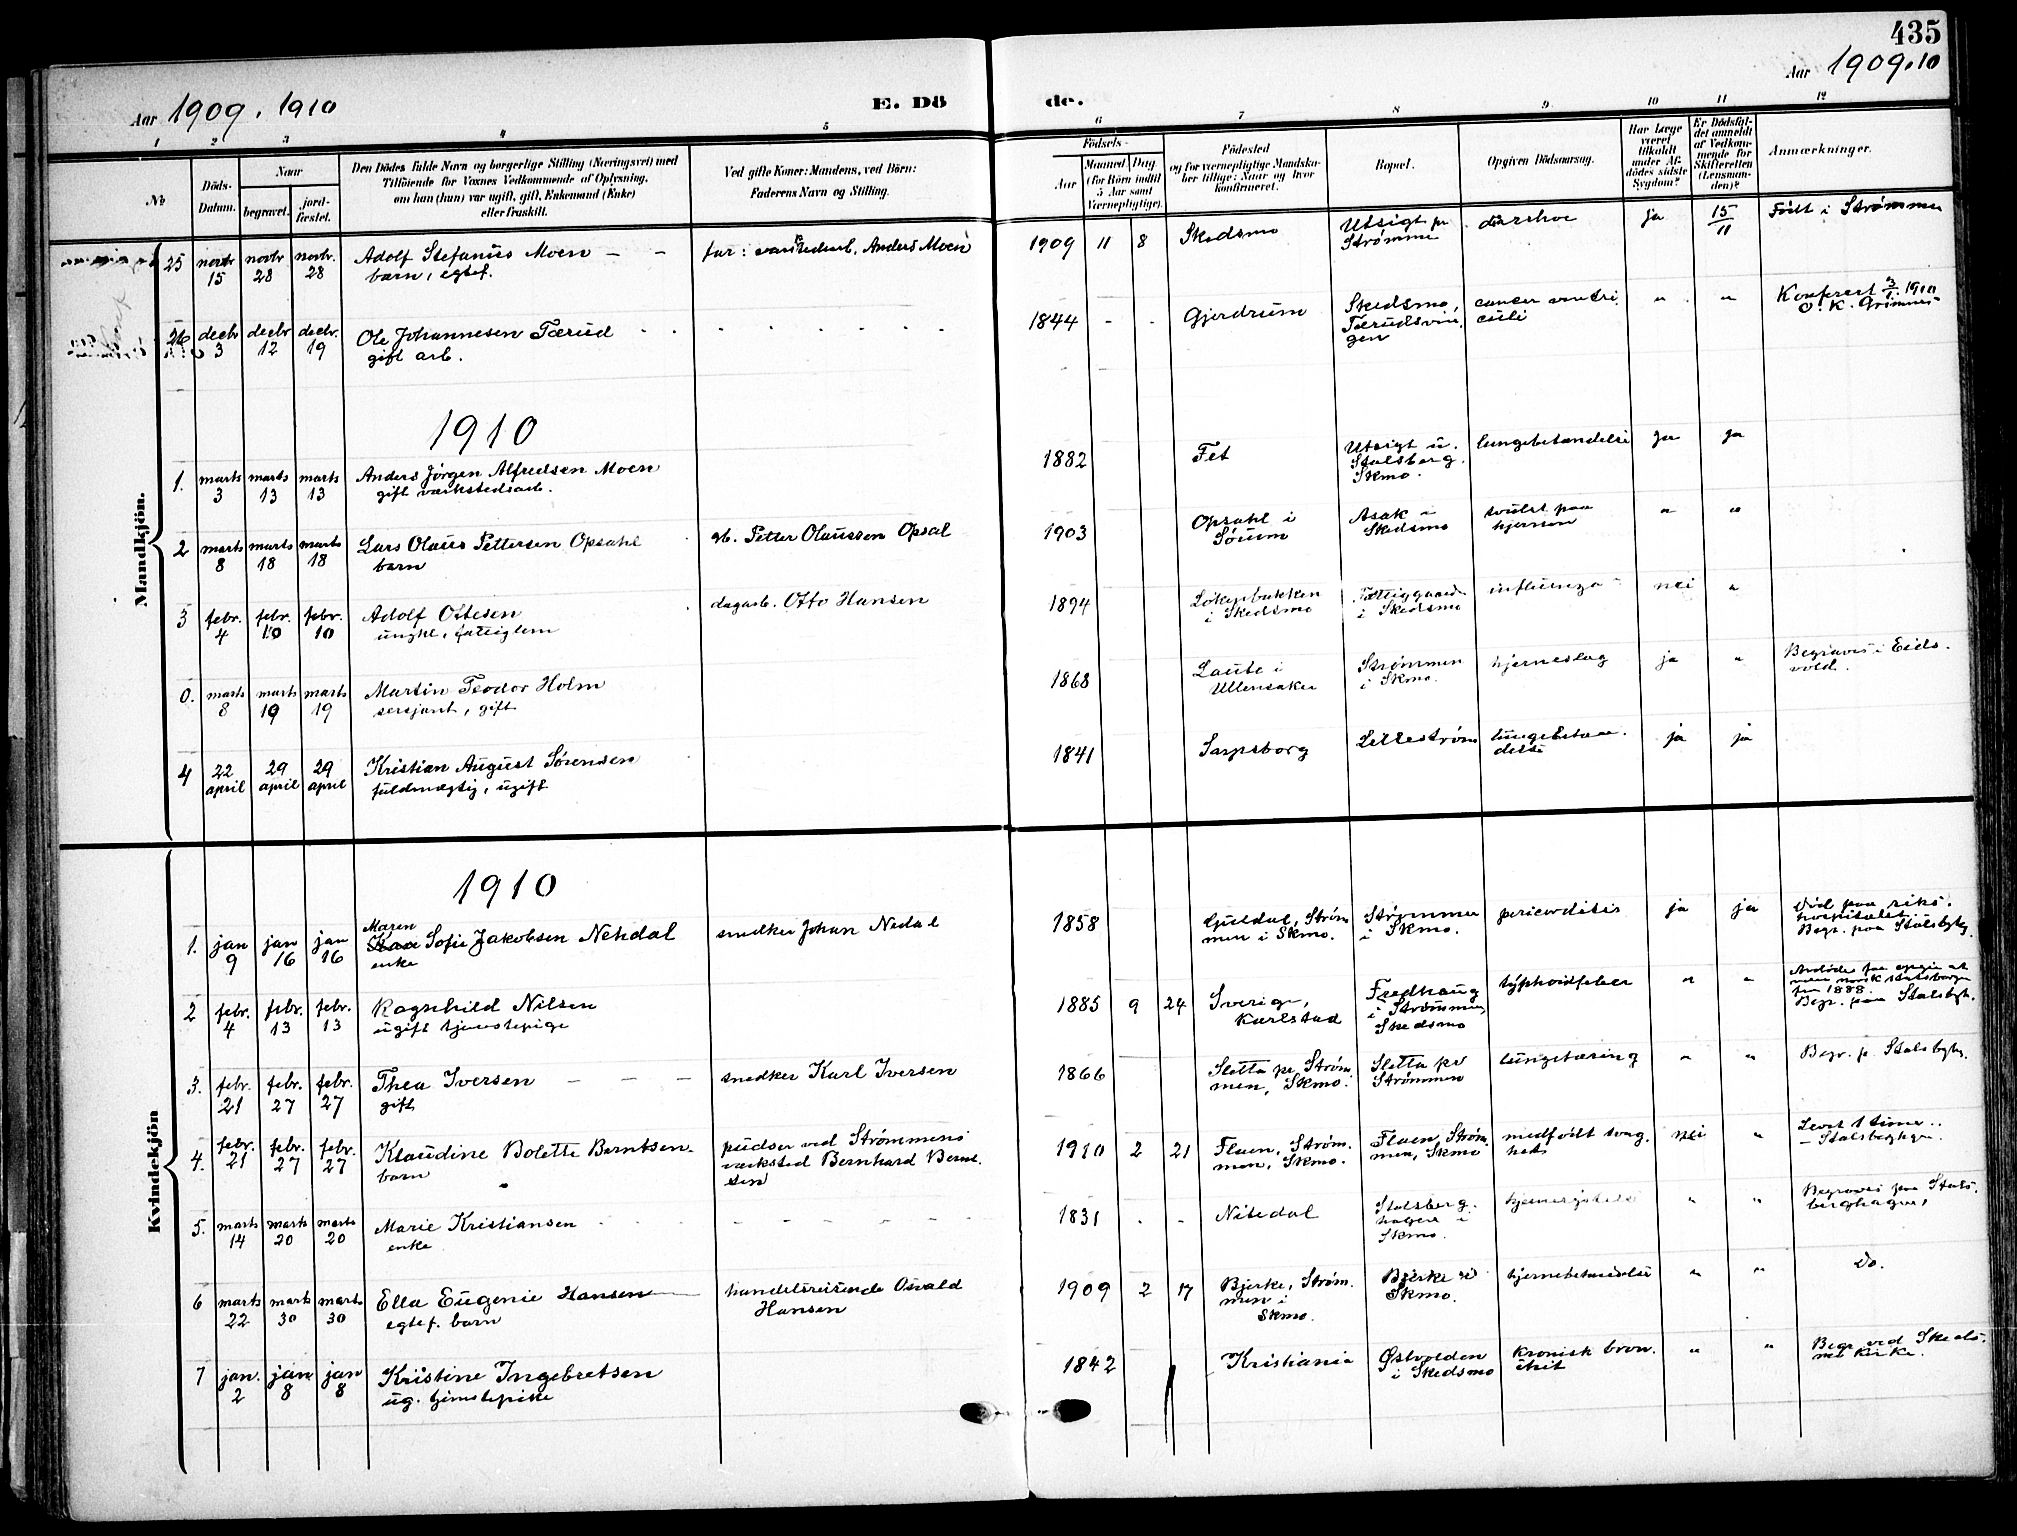 435
Aar 1909. 1910
E. Dö
de.
Aar 1909.10
1 2 3 4 5 6 7 8 9 10 11 12
No
Döds-
Datum.
Naar
begravet.
jord-
fæstet.
Den Dödes fulde Navn og borgerlige Stilling (Næringsvei) med
Tilföiende for Voxnes Vedkommende af Oplysning,
om han (hun) var ugift, gift, Enkemand (Enke)
eller fraskilt.
Ved gifte Koner: Mandens, ved Börn:
Faderens Navn og Stilling.
Födsels-
Aar
Maaned
Dag
(for Börn indtil
5 Aar samt
Værnepligtige).
Födested
og for værnepligtige Mandska-
ber tillige: Naar og hvor
konfirmeret.
Bopæl.
Opgiven Dödsaarsag.
Har Læge
været
tilkaldt
under Af-
dødes sidste
Sygdom?
Er Dödsfal-
det anmeldt
af Vedkom-
mende for
Skifteretten
(Lensman-
den)?
Anmærkninger.
Mandkjön.
25 novbr 15 novbr 28 novbr. 28 Adolf Stefanius Moen - -
barn, egtef.
far: værkstedarb. Anders Moen
1909 11 8 Skedsmo
Utsigt pr
Strømmen
ja 15/11 Födt i Strømmen
26 decbr 3 decbr 12 decbr. 19 Ole Johannesen Tærud
gift arb.
1844 - - Gjerdrum
Skedsmo,
Tærudsvin-
gen
cancer ventri
culi
" " Konferert 3/1 1910
O. K. Grimnes
1910
1. marts 3 marts 13 marts 13 Anders Jørgen Alfredsen Moen
gift værkstedsarb.
1882 Fet
Utsigt u.
Stalsberg.
Skmo.
lungebetændelse ja ja
2 marts 8 marts 18 marts 18 Lars Olaus Pettersen Opsahl
barn
gb. Petter Olaussen Opsal
1903 Opsahl i
Sørum
Asak i
Skedsmo
svulst paa
hjernen
" "
3 febr. 4 febr. 10 febr. 10 Adolf Ottesen
ungkl, fattiglem
dagarb. Otto Hansen
1894 Løkenbakken
i Skedsmo
Fattiggaard
i Skedsmo
influenza nei "
0. marts 8 marts 19 marts 19 Martin Teodor Holm
sersjant, gift
1868 Laute i
Ullensaker
Strømmen
i Skmo.
hjerneslag ja " Begravet i Eids-
vold.
4 22 april 29 april 29 april Kristian August Sørensen
fuldmægtig, ugift
1841 Sarpsborg Lilleström lungebetæn-
delse
ja ja
Kvindekjön
1910
1. jan 9 jan 16 jan 16 Maren
Sofie Jakobsen Nehdal
enke
snedker Johan Nedal
1858 Guldal, Strøm
men i Skmo.
Strømmen
i Skmo.
pericarditis ja ja Död paa riks-
hospitalet.
Begr. paa Stalsbghg.
2 febr. 4 febr. 13 febr. 13 Ragnhild Nilsen
ugift tjenestepige
1885 9 24 Sverige,
Karlstad
Fredhaug
i Strømmen,
Skedsmo
typhoidfeber " "
fra 1888.
Begr. paa Stalsbgh.
3. febr. 21 febr. 27 febr. 27 Thea Iversen - - -
gift
snedker Karl Iversen
1866 Sletta pr. Strøm
men, Skmo.
Sletta pr
Strømmen
lungetæring " " Begr. p. Stalsbghg.
4. febr. 21 febr. 27 febr. 27 Klaudine Bolette Berntsen
barn
pudser ved Strømmens
værksted Bernhard Bernt-
sen
1910 2 21 Flaen, Strøm-
men, Skmo.
Flaen, Strøm
men, Skmo
medfödt svag-
het
nei " Levet 1 time..
- Stalsbghgn.
5. marts 14 marts 20 marts 20 Marie Kristiansen
enke
1831 - - Nitedal
Stalsberg-
hagen i
Skmo.
" " Begravet paa Stals-
berghagen,
6 marts 22 marts 30 marts 30 Ella Eugenie Hansen
egtef. barn
handelsreisende Osvald
Hansen
1909 2 17 Bjerke, Strøm-
men i
Skmo.
Bjerke i
Skmo.
hjernebetændelse " " Do.
7 jan. 2 jan 8 jan 8 Kristine Ingebretsen
ug. tjenstepike
1842 Kristiania
Østvolden
i Skedsmo
kronisk bron-
chit
" " Begr. ved Skeds-
mo kirke.